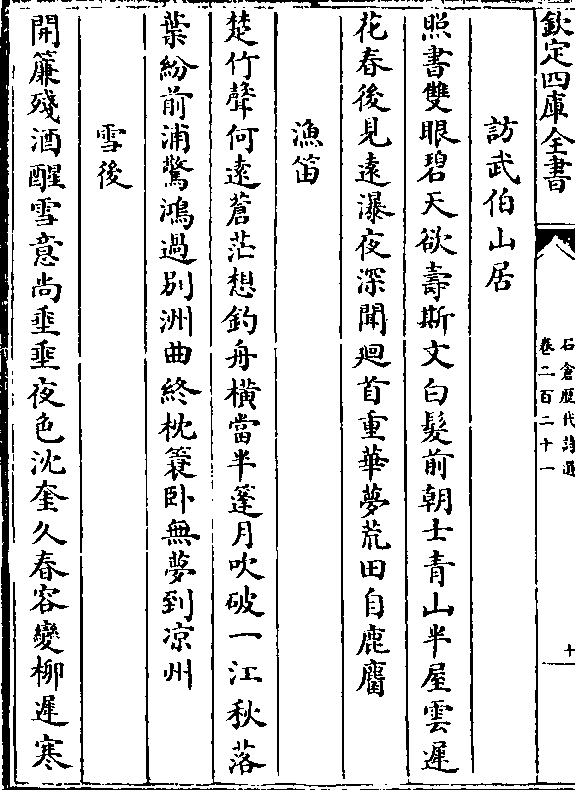 欽定四庫全書
石倉歷代詩選
卷二百二十一
十
訪武伯山居
照書雙眼碧天欲壽斯文白髮前朝士青山半屋雲遲
花春後見遠瀑夜深聞廻首重華夢荒田自鹿麕
漁笛
楚竹聲何遠蒼茫想釣舟橫當半篷月吹破一江秋落
葉紛前浦驚鴻過別洲曲終枕簑卧無夢到凉州
雪後
開簾殘酒醒雪意尚垂垂夜色沈奎久春容變柳遲寒